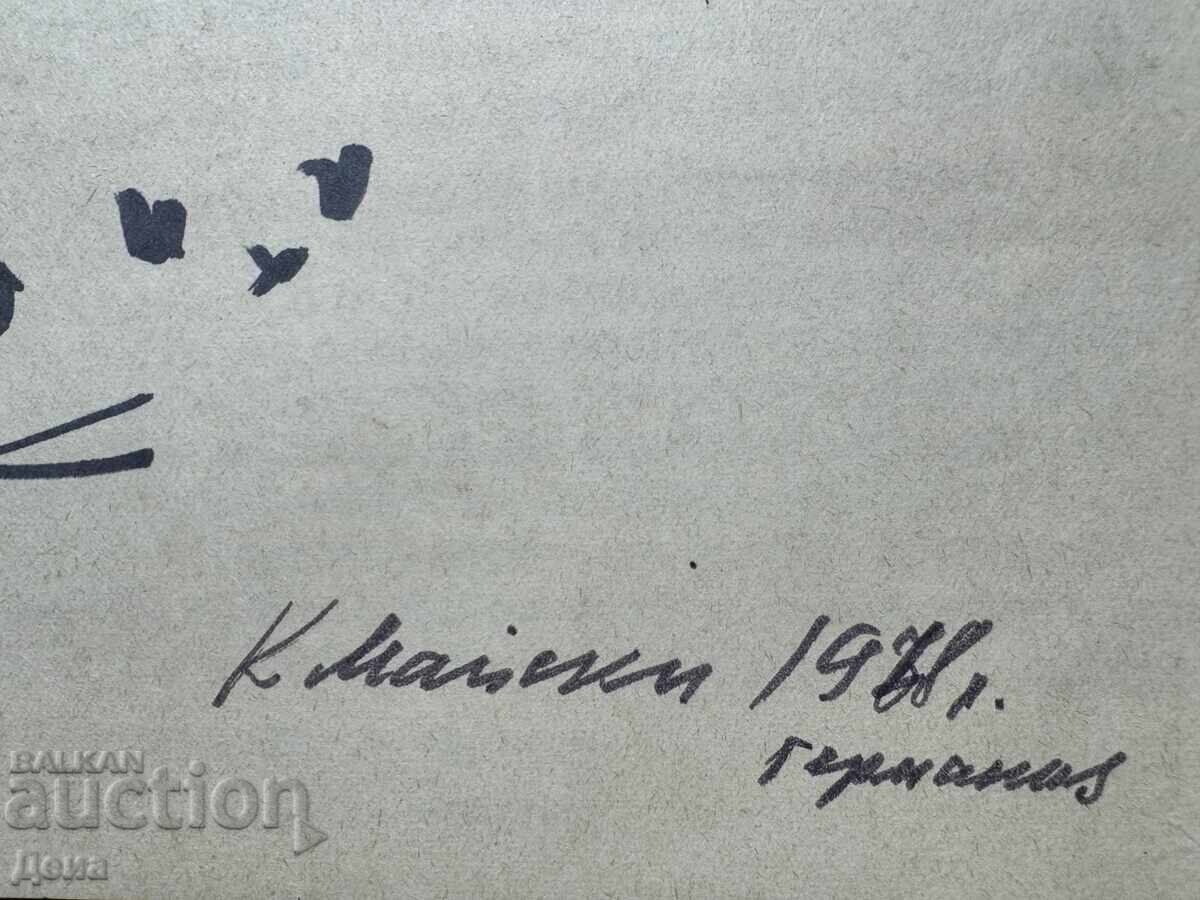 К Майски 1978 г.
Германия
BALKAN
auction
Деиа